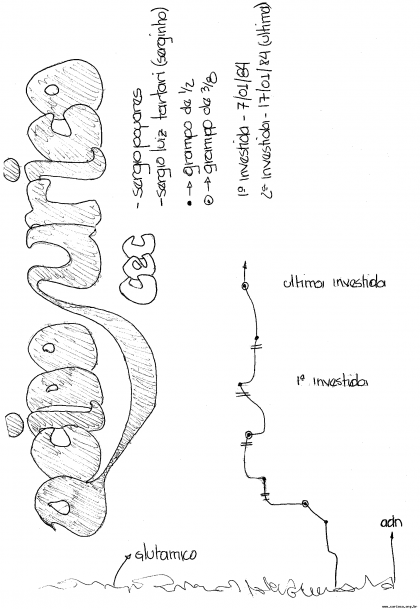 acido urico
CEC
- sergio poyares
- sergio luiz tartari (serginho)
• → grampo de 1/2
⊙ → grampo de 3/8
1ª investida - 7/01/84
2ª investida - 17/01/84 (ultima)
ultima investida
1ª investida
adn
glutamico